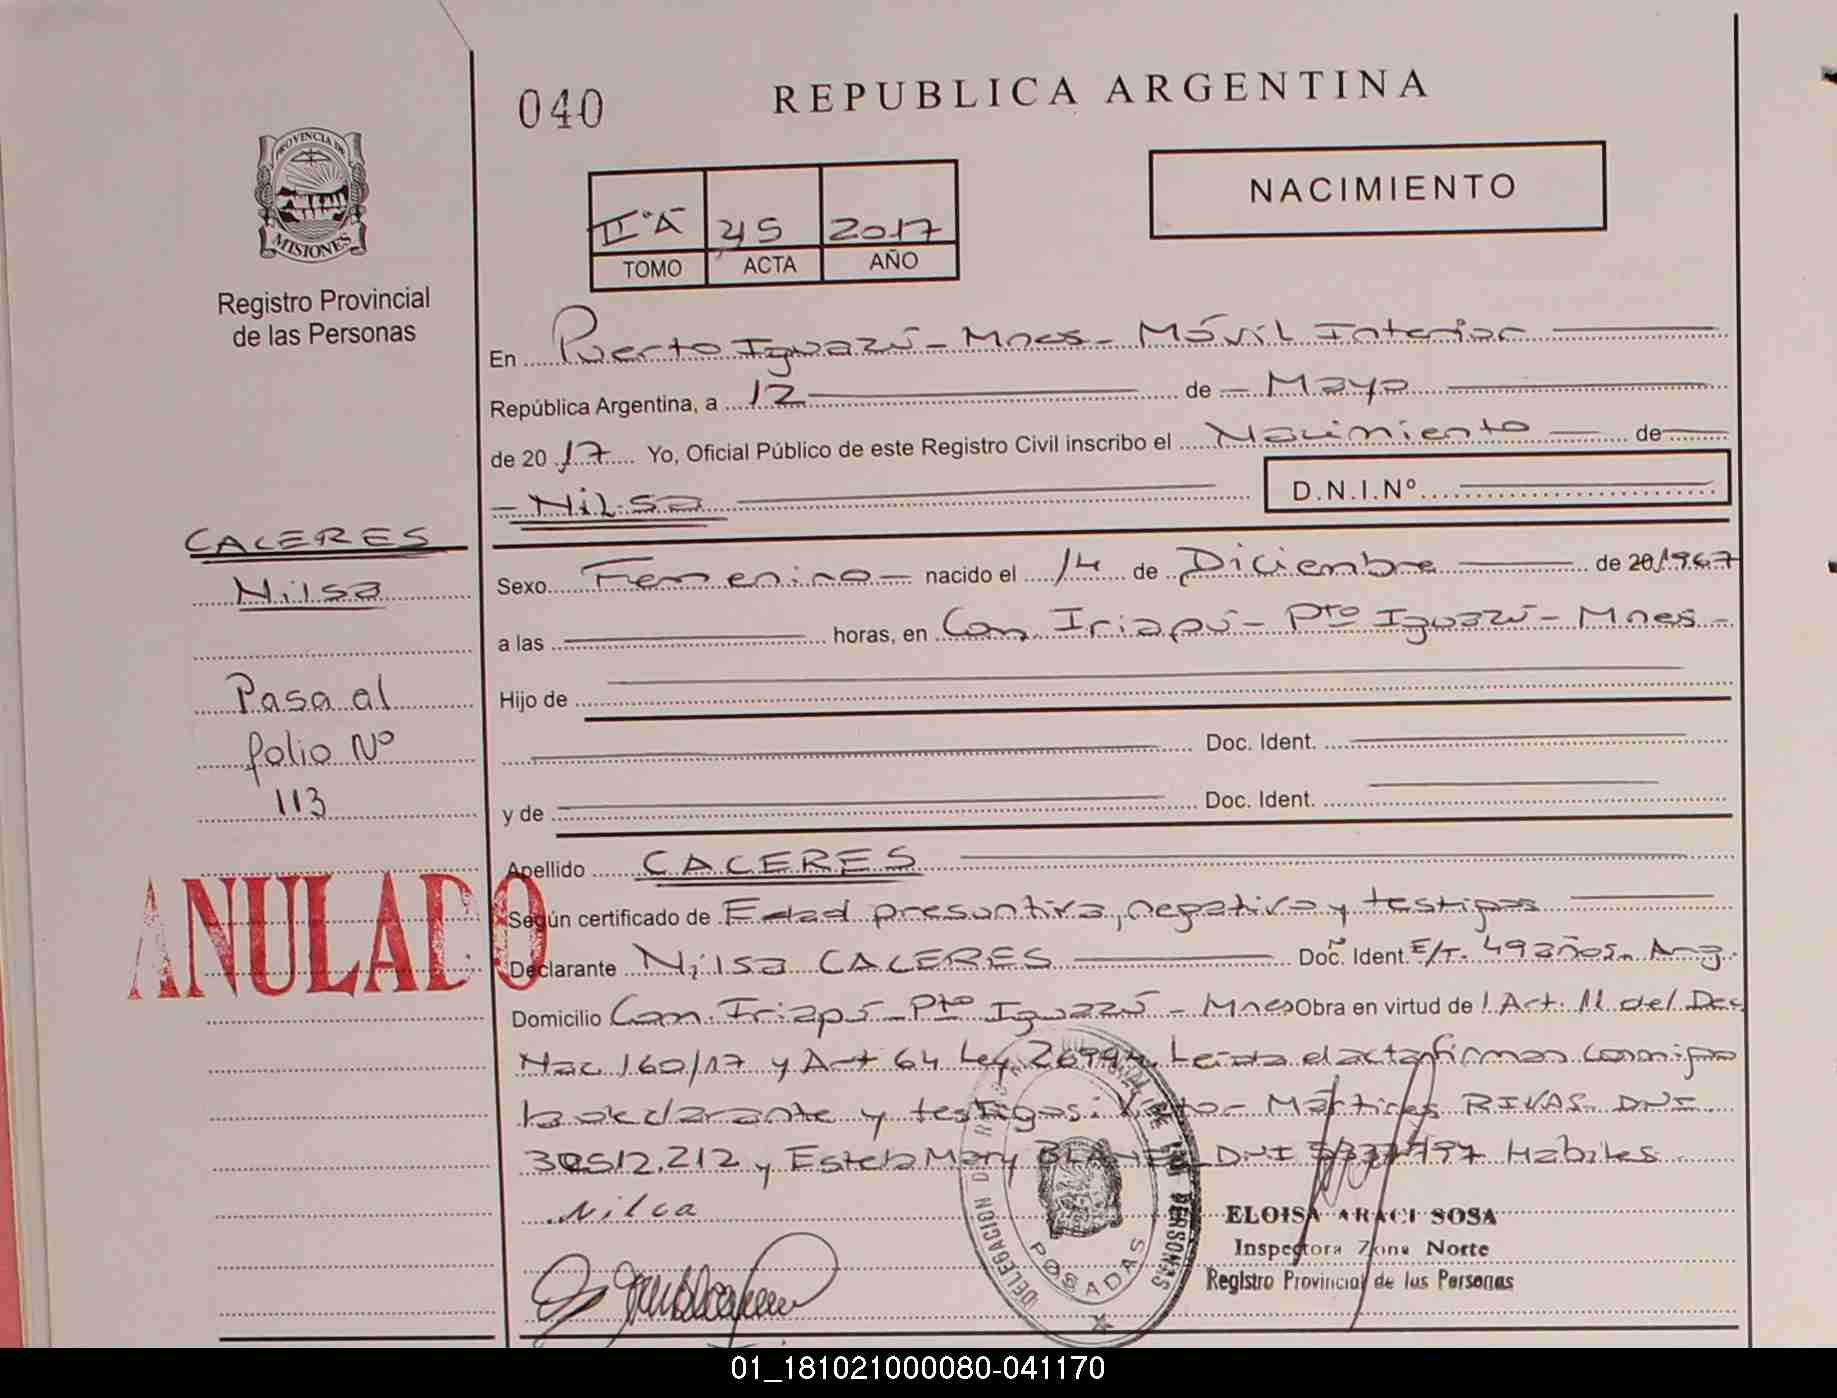 040
REPUBLICA ARGENTINA
PROVINCIA DE
MISIONES
Registro Provincial
de las Personas
II°A 45 2017
TOMO ACTA AÑO
NACIMIENTO
En Puerto Iguazú - Mnes - Móvil Interior
República Argentina, a 12 de Mayo
de 2017 Yo, Oficial Público de este Registro Civil inscribo el Nacimiento de
Nilsa D.N.I.Nº
CACERES
Nilsa
Pasa al
folio Nº
113
ANULADO
Sexo Femenino - nacido el 14 de Diciembre de 20 1967
a las horas, en Com. Iriapú - Pto Iguazú - Mnes -
Hijo de
Doc. Ident.
y de Doc. Ident.
Apellido CACERES
Según certificado de Edad presuntiva, negativa y testigos
Declarante Nilsa CACERES Doc. Ident. E/T. 49 años - Arg.
Domicilio Com. Iriapú - Pto Iguazú - Mnes Obra en virtud de l Art. 11 del Dec
Nac 160/17 y Art 64 Ley 26994. Leída el acta firman conmigo
la declarante y testigos: Martines RIVAS DNI
30512.212 y Estela Mary DNI Habiles
Nilca
DELEGACION DE LAS PERSONAS
POSADAS
ELOISA ARACI SOSA
Inspectora Zona Norte
Registro Provincial de las Personas
01_181021000080-041170